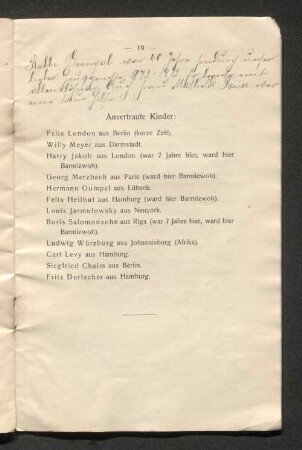 — 19 —
Rabbi Gumpel war 40 Jahre hindurch unser
mit
allen Frau war
eine treue Hilfe.
Anvertraute Kinder:
Felix London aus Berlin (kurze Zeit).
Willy Meyer aus Darmstadt.
Harry Jakob aus London (war 7 Jahre hier, ward hier
Barmizwoh).
Georg Merzbach aus Paris (ward hier Barmizwoh).
Hermann Gumpel aus Lübeck.
Felix Heilbut aus Hamburg (ward hier Barmizwoh).
Louis Jarmulowsky aus Neuyork.
Boris Salomonsohn aus Riga (war 7 Jahre hier, ward hier
Barmizwoh).
Ludwig Würzburg aus Johannisburg (Afrika).
Carl Levy aus Hamburg.
Siegfried Chaim aus Berlin.
Fritz Durlacher aus Hamburg.